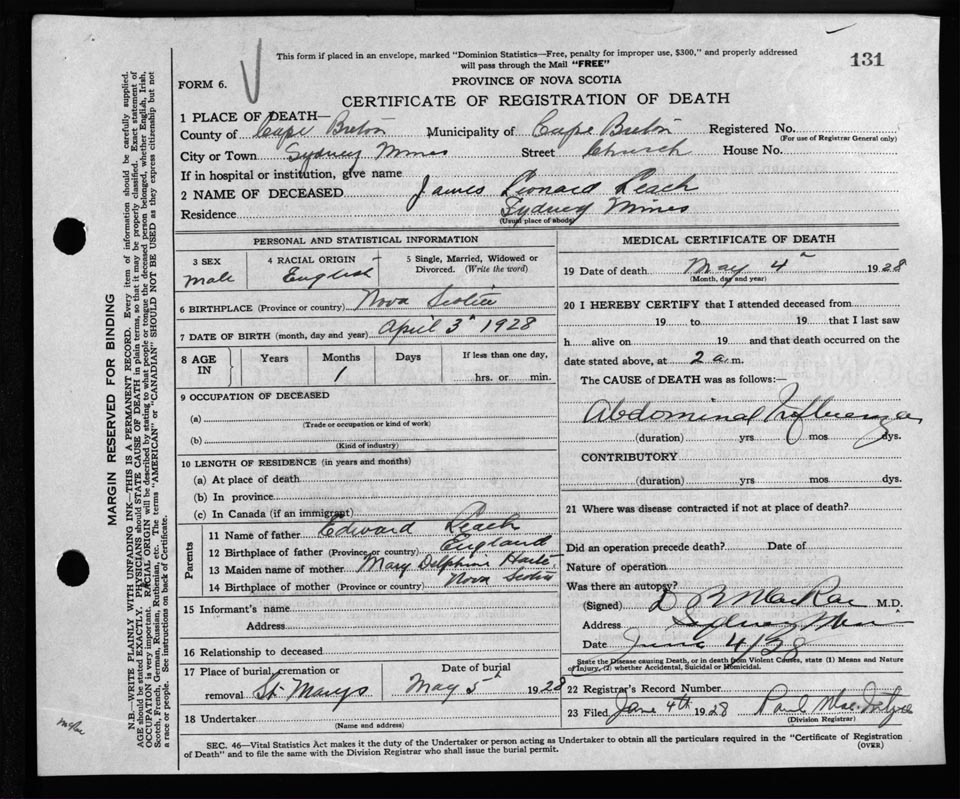 This form if placed in an envelope, marked "Dominion Statistics—Free, penalty for improper use, $300," and properly addressed
will pass through the Mail "FREE"
131
FORM 6.
PROVINCE OF NOVA SCOTIA
CERTIFICATE OF REGISTRATION OF DEATH
1 PLACE OF DEATH—
County of Cape Breton Municipality of Cape Breton Registered No.
(For use of Registrar General only)
City or Town Sydney Mines Street Church House No.
If in hospital or institution, give name
2 NAME OF DECEASED James Leonard Leach
Residence Sydney Mines
(Usual place of abode)
PERSONAL AND STATISTICAL INFORMATION
3 SEX
male
4 RACIAL ORIGIN
English
5 Single, Married, Widowed or
Divorced. (Write the word)
6 BIRTHPLACE (Province or country) Nova Scotia
7 DATE OF BIRTH (month, day and year) April 3 1928
8 AGE
IN
Years
Months
1
Days
If less than one day,
hrs. or min.
9 OCCUPATION OF DECEASED
(a)
(Trade or occupation or kind of work)
(b)
(Kind of industry)
10 LENGTH OF RESIDENCE (in years and months)
(a) At place of death
(b) In province
(c) In Canada (if an immigrant)
Parents
11 Name of father Edward Leach
12 Birthplace of father (Province or country) England
13 Maiden name of mother Mary Delphine
14 Birthplace of mother (Province or country) Nova Scotia
15 Informant's name
Address
16 Relationship to deceased
17 Place of burial, cremation or
removal St. Marys
Date of burial
May 5th 1928
18 Undertaker
(Name and address)
MEDICAL CERTIFICATE OF DEATH
19 Date of death May 4th 1928
(Month, day and year)
20 I HEREBY CERTIFY that I attended deceased from
19 to 19 that I last saw
h alive on 19 and that death occurred on the
date stated above, at 2 a.m.
The CAUSE of DEATH was as follows:—
Abdominal Influenza
(duration) yrs mos dys.
CONTRIBUTORY
(duration) yrs mos dys.
21 Where was disease contracted if not at place of death?
Did an operation precede death? Date of
Nature of operation
Was there an autopsy?
(Signed) D R MacRae M.D.
Address Sydney Mines
Date June 4/28
State the Disease causing Death, or in death from Violent Causes, state (1) Means and Nature
of Injury, (2) whether Accidental, Suicidal or Homicidal.
22 Registrar's Record Number
23 Filed June 4th 1928 Paul
(Division Registrar)
SEC. 46—Vital Statistics Act makes it the duty of the Undertaker or person acting as Undertaker to obtain all the particulars required in the "Certificate of Registration
of Death" and to file the same with the Division Registrar who shall issue the burial permit.
(OVER)
MARGIN RESERVED FOR BINDING
N.B.—WRITE PLAINLY WITH UNFADING INK—THIS IS A PERMANENT RECORD. Every item of information should be carefully supplied.
AGE should be stated EXACTLY. PHYSICIANS should STATE CAUSE OF DEATH in plain terms, so that it may be properly classified. Exact statement of
OCCUPATION is very important. RACIAL ORIGIN will be described by stating to what people or tongue the deceased person belonged, whether English, Irish,
Scotch, French, German, Russian, Ruthenian, etc. The terms "AMERICAN" or "CANADIAN" SHOULD NOT BE USED as they express citizenship but not
a race or people. See instructions on back of Certificate.